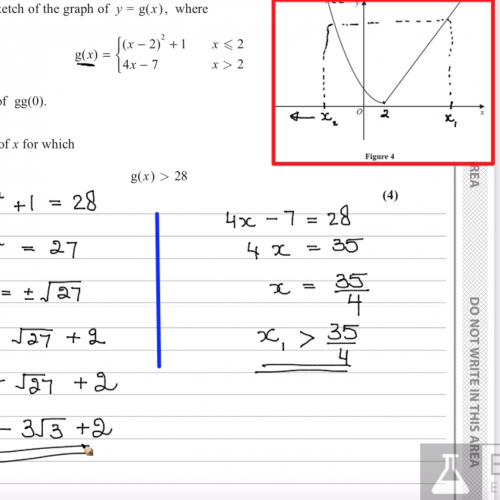 ketch of the graph of y = g(x), where
g(x) = { (x − 2)² + 1 x ⩽ 2
4x − 7 x > 2
of gg(0).
of x for which
g(x) > 28
(4)
y
O 2 x₂ x₁ x
Figure 4
+1 = 28
= 27
= ±√27
√27 + 2
− √27 + 2
− 3√3 + 2
4x − 7 = 28
4x = 35
x = 35/4
x₁ > 35/4
AREA
DO NOT WRITE IN THIS AREA